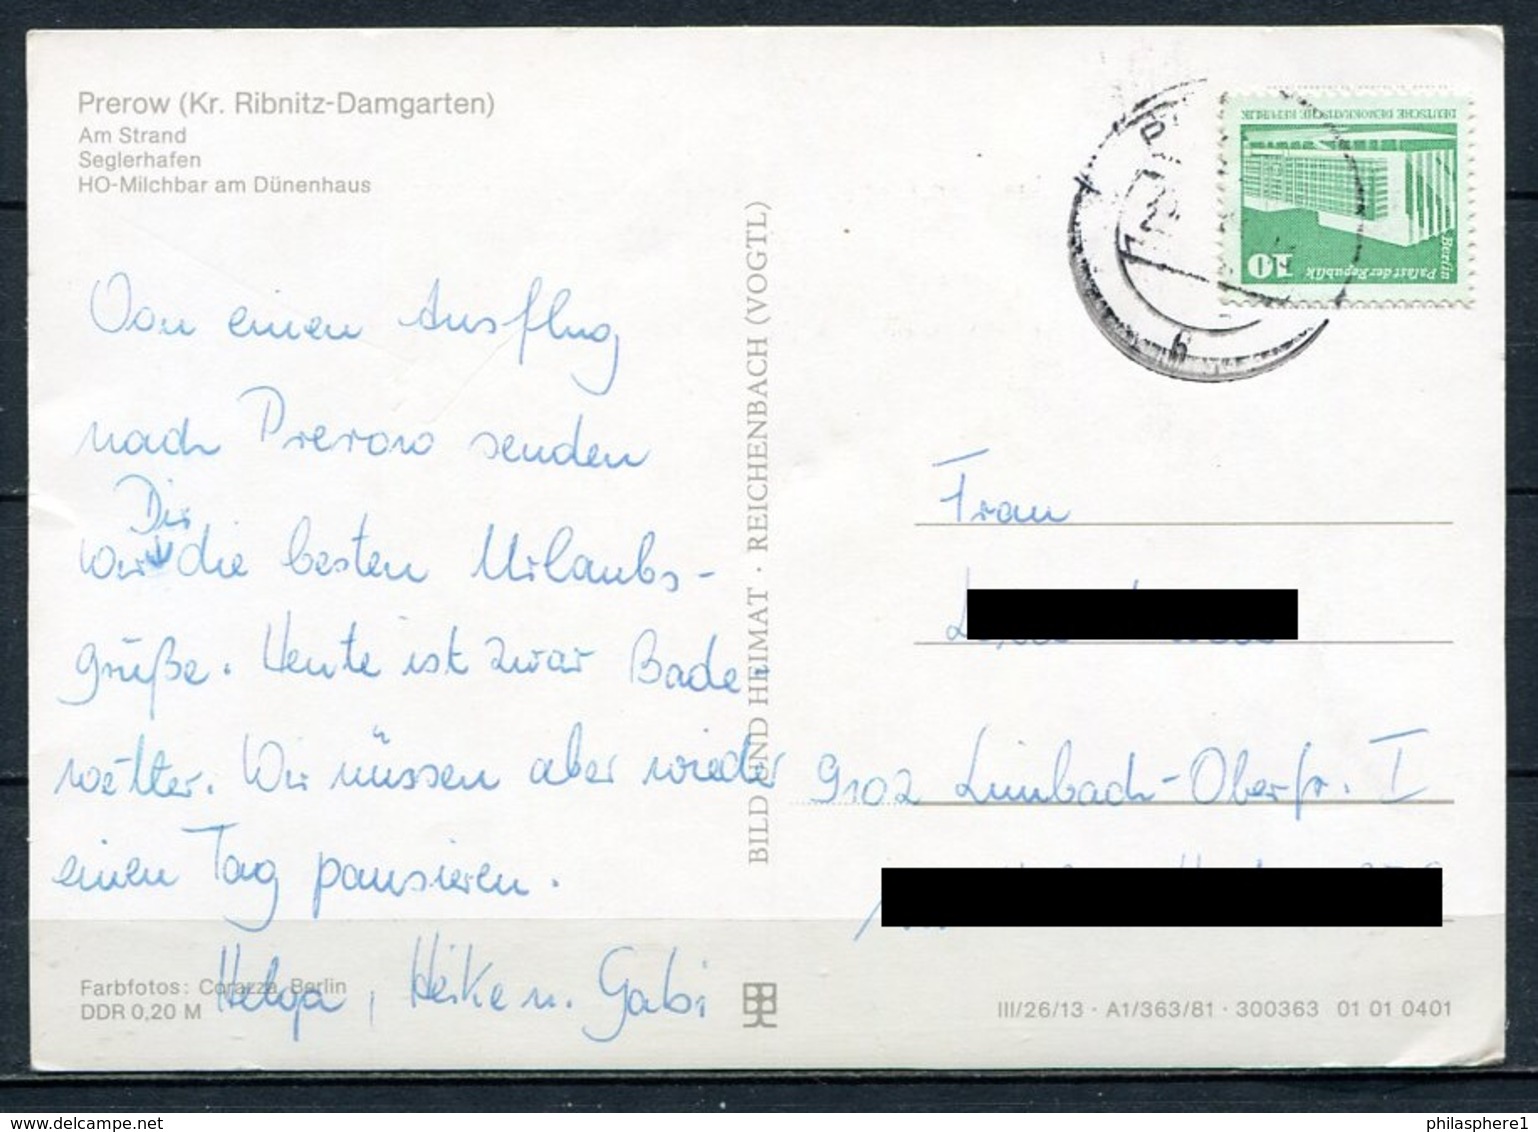 Prerow (Kr. Ribnitz-Damgarten)
Am Strand
Seglerhafen
HO-Milchbar am Dünenhaus
Von einen Ausflug
nach Prerow senden
Dir
wir die besten Urlaubs-
grüße. Heute ist zwar Bade-
wetter. Wir müssen aber wieder
einen Tag pausieren.
Helga, Heike u. Gabi
Farbfotos: Corazza, Berlin
DDR 0,20 M
BILD UND HEIMAT · REICHENBACH (VOGTL)
DEUTSCHE DEMOKRATISCHE REPUBLIK
10
Palast der Republik
Berlin
Frau
9102 Limbach-Oberfr. I
III/26/13 · A1/363/81 · 300363 01 01 0401
delcampe.net
philasphere1